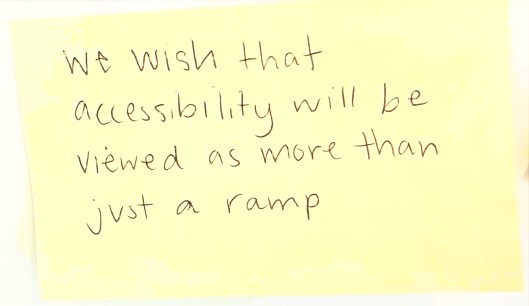 we wish that
accessibility will be
viewed as more than
just a ramp